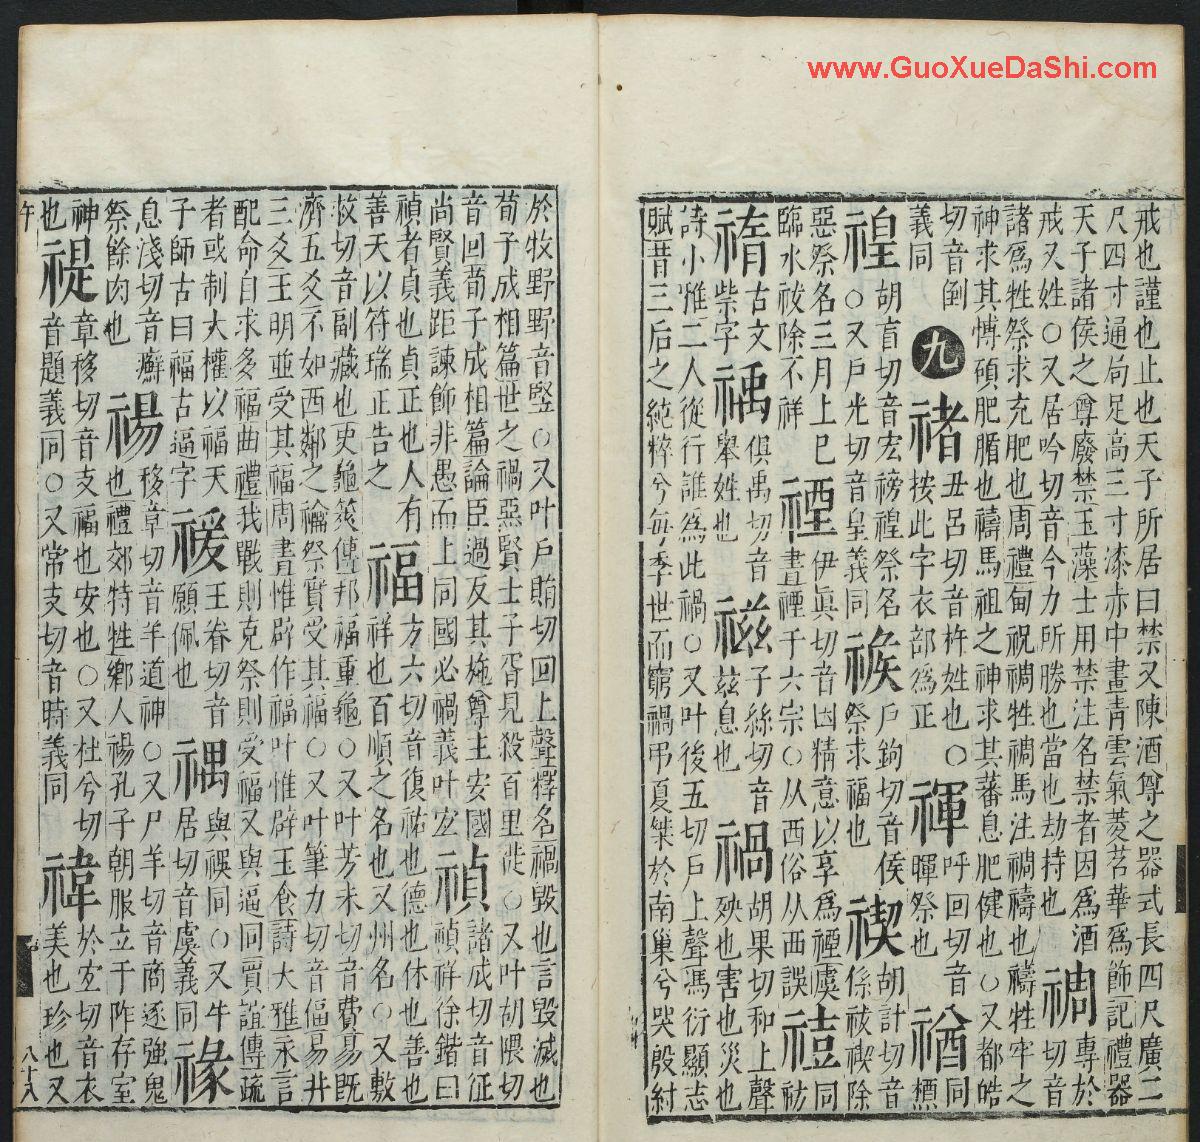 戒也謹也止也天子所居曰禁又陳酒尊之器式長四尺廣二
尺四寸通局足高三寸漆赤中畫青雲氣菱苕華爲飾記禮器
天子諸侯之尊廢禁玉藻士用禁注名禁者因爲酒
戒又姓○又居吟切音今力所勝也當也劫持也
禂
專於
切音
諸爲牲祭求充肥也周禮甸祝禂牲禂馬注禂禱也禱牲牢之
神求其愽碩肥腯也禱馬祖之神求其蕃息肥健也○又都皓
切音倒
義同
九
禇
丑呂切音杵姓也○
按此字衣部爲正
禈
呼回切音
暉祭也
禉
同
槱
胡盲切音宏祭名
○又戶光切音皇義同
戶鉤切音侯
祭求福也
禊
胡計切音
係祓禊除
惡祭名三月上巳
臨水祓除不祥
禋
伊眞切音因精意以享爲禋虞
書禋于六宗○从西俗从西誤
同
祊
古文
祡字
俱禹切音
舉姓也
禌
子絲切音
兹息也
禍
胡果切和上聲
殃也害也災也
詩小雅二人從行誰爲此禍○又叶後五切戶上聲馮衍顯志
賦昔三后之純粹兮每季世而窮禍弔夏桀於南巢兮哭殷紂
於牧野野音墅○又叶戶賄切回上聲釋名禍毀也言毀滅也
荀子成相篇世之禍惡賢士子胥見殺百里徙○又叶胡隈切
音回荀子成相篇論臣過反其施尊主安國
尚賢義距諫飾非愚而上同國必禍義叶宐
禎
諸成切音征
禎祥徐鍇曰
禎者貞也貞正也人有
善天以符瑞正告之
福
方六切音復祐也德也休也善也
祥也百順之名也又州名○又敷
救切音副藏也史龜筴傳邦福重龜○又叶芳未切音費易既
濟五爻不如西鄰之禴祭實受其福○又叶筆力切音偪易井
三爻王明並受其福周書惟辟作福叶惟辟玉食詩大雅永言
配命自求多福曲禮我戰則克祭則受福又與逼同賈誼傳疏
者或制大權以福天
子師古曰福古逼字
禐
王眷切音
願佩也
禑
與䄄同○又牛
居切音虞義同
禒
息淺切音癬
祭餘肉也
禓
移章切音羊道神○又尸羊切音商逐強鬼
也禮郊特牲鄉人禓孔子朝服立于阼存室
神
也
禔
章移切音支福也安也○又杜兮切
音題義同○又常支切音時義同
禕
於宐切音衣
美也珍也又
午
八十八
www.GuoXueDaShi.com